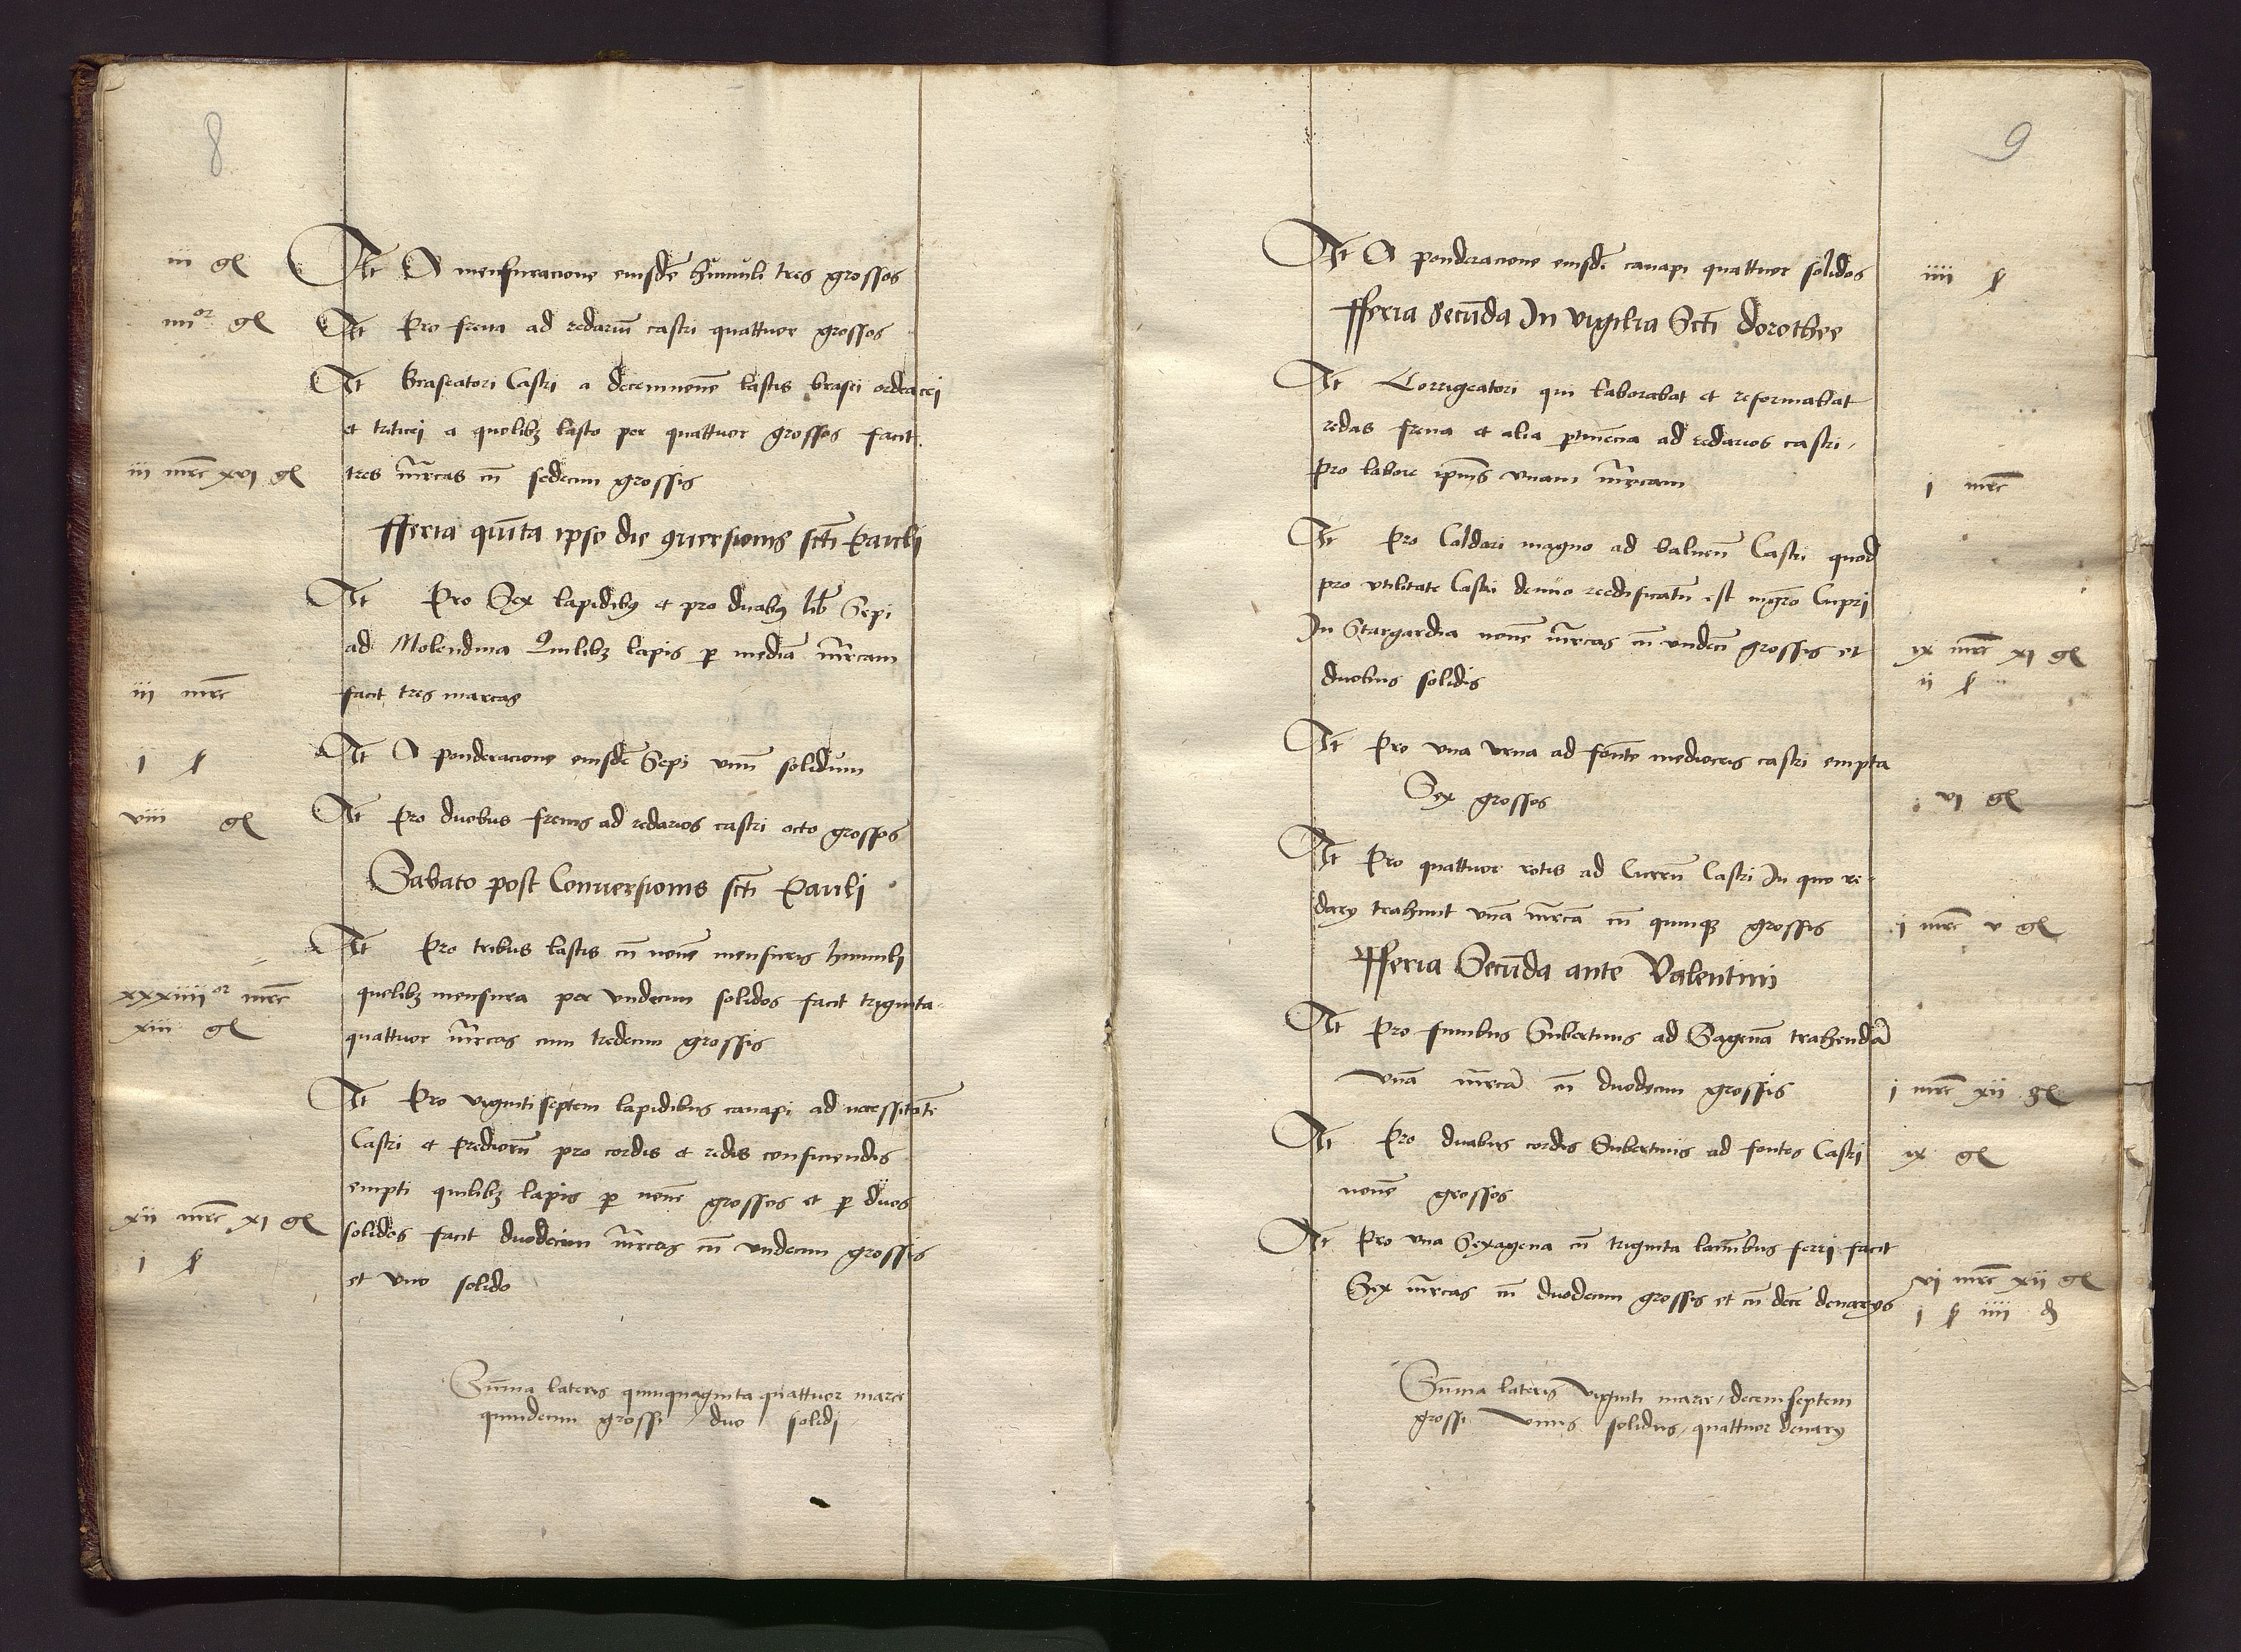 8
iii gl
It A mensuracione eiusdẽ humuli tres grossos
iiiior gl
It Pro frena ad redariũ castri quattuor grossos
It Braseatori Castri a decemnouẽ lastis brasei ordeacei
et triticei a quolibꝫ lasto per quattuor grossos facit
iii mrc xvi gl
tres mrcas cũ sedecim grossis
fferia quĩta ipso die ꝯuersionis sctĩ Pauli
It Pro Sex lapidibꝯ et pro duabꝯ lib Sepi
ad Molendina Quilibꝫ lapis ꝑ mediã mrcam
iii mrc
facit tres marcas
i ß
It A ponderacione eiusdẽ Sepi vnũ solidum
viii gl
It Pro duobus frenis ad redarios castri octo grossos
Sabato post Conuersionis sctĩ Pauli
It Pro tribus lastis cũ nouẽ mensuris humuli
xxxiiiior mrc
quelibꝫ mensura per vndecim solidos facit triginta
xiii gl
quattuor mrcas cum tredecim grossis
It Pro vigintiseptem lapidibus canapi ad necessitatẽ
Castri et prediorũ pro cordis et redis conficiendis
empti quilibꝫ lapis ꝑ nouẽ grossos et ꝑ duos
xii mrc xi gl
solidos facit duodecim mrcas cũ vndecim grossis
i ß
et vno solido
Sũma lateris quinquaginta quattuor marce
quindecim grossi / duo solidi
9
It A ponderacione eiusdẽ canapi quattuor solidos
iiii ß
fferia Secũda In vigilia Sctĩ dorothee
It Corrigeatori qui laborabat et reformabat
redas frena et alia ꝑtinẽcia ad redarios castri
pro labore ipsius vnam mrcam
i mrc
It Pro Caldari magno ad balneũ Castri quod
pro vtilitate Castri denuo reedificatũ est nigro Cupri
In Stargardia nouẽ mrcas cũ vndecĩ grossis et
ix mrc xi gl
duobus solidis
ii ß
It Pro vna vrna ad fontẽ mediocris castri empta
Sex grossos
vi gl
It Pro quattuor rotis ad Currũ Castri In quo re-
dary trahunt vnã mrcã cũ quinqꝫ grossis
i mrc v gl
fferia Secũda ante Valentini
It Pro funibus Subertinis ad Sagenã trahendã
vnã mrcã cũ duodecim grossis
i mrc xii gl
It Pro duabus cordis Subertinis ad fontes Castri
ix gl
nouẽ grossos
It Pro vna Sexagena cũ triginta lamĩbus ferri facit
Sex mrcas cũ duodecim grossis et cũ decẽ denarys
vi mrc xii gl
i ß iiii ₰
Sũma lateris viginti marce / decemseptem
grossi vnus solidus / quattuor denary